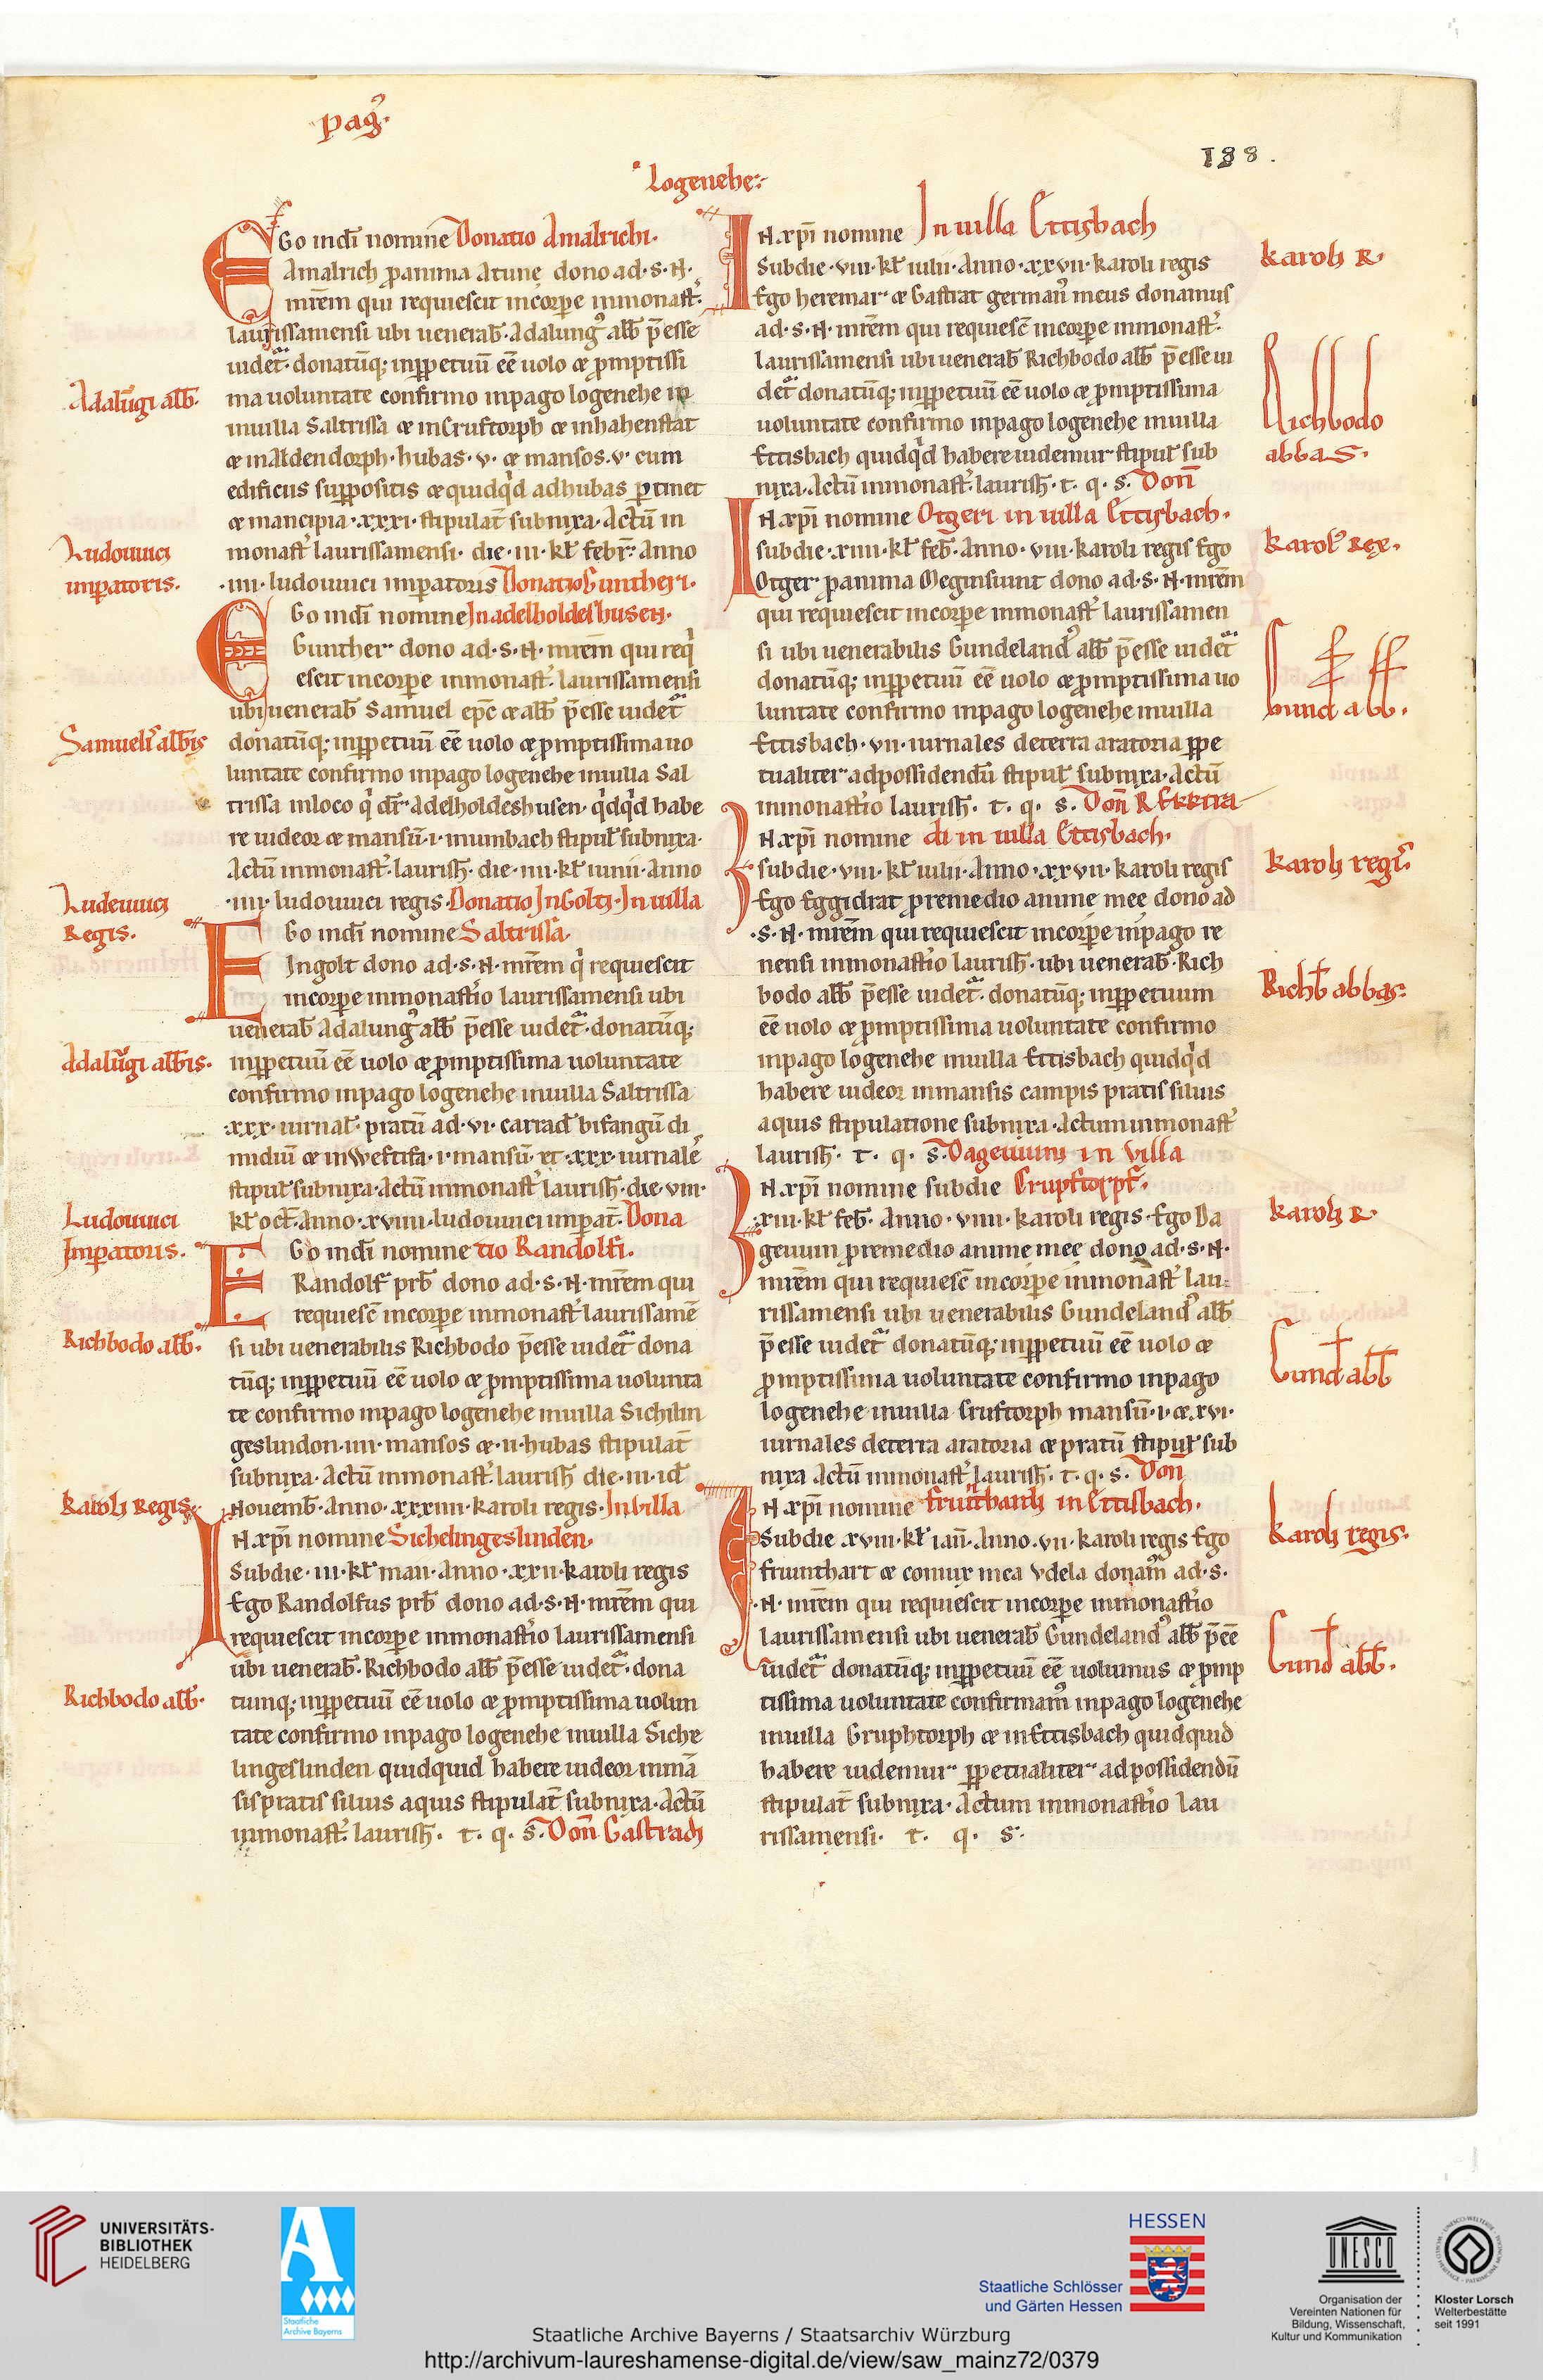 pag̅.
188.
Logenehe:
Ego in di̅ nomine Donatio Amalrichi.
Amalrich p̱ anima Atune dono ad·s·N·
mr̅em qui requiescit in corpe in monast̅.
laurissamensi ubi uenerab̅·Adalung᷒ abb̅ p̅esse
uidet᷑·donatu̅q; inp̱petuu̅ ee̅ uolo & p̱mptissi
ma uoluntate confirmo in pago logenehe in
in uilla Saltrissa & in Cruftorph & in hahenstat
& in aldendorph·hubas·v·& mansos·v·cum
edificiis supp̱ositis & quidq'd ad hubas p̱tinet
& mancipia·xxxi·stipulat̅ subnixa·Actu̅ in
monast̅ laurissamensi·die·iii·kl̅ febr̅·anno
·iiii·ludouuici imp̱atoris Donatio Guntheri·
Ego in di̅ nomine In adelholdeshusen·
Gunther dono ad·s·N·mr̅em qui req'
escit in corpe in monast̅·laurissamensi
ubi uenerab̅ Samuel epc̅ & abb̅ p̅esse uidet᷑
donatu̅q; inp̱petuu̅ ee̅ uolo & p̱mptissima uo
luntate confirmo in pago logenehe in uilla Sal
trissa in loco q' dr̅ Adelholdeshusen·q'dq'd habe
re uideor & mansu̅·i·in umbach stipul̅ subnixa·
Actu̅ in monast̅·laurish̅·die·iiii·kl̅ iunii·anno
·iiii·ludouuici regis·Donatio Ingolti·In uilla
Ego in di̅ nomine Saltrissa·
Ingolt dono ad·s·N·mr̅em q' requiescit
in corpe in monast̅io laurissamensi ubi
uenerab̅ Adalung᷒ abb̅ p̅esse uidet᷑·donatu̅q;
inp̱petuu̅ ee̅ uolo & p̱mptissima uoluntate
confirmo in pago logenehe in uilla Saltrissa
·xxx·iurnal̅·pratu̅ ad·vi·carrad̅ bifangu̅ di
midiu̅ & in Westifa·i·mansu̅·et·xxx·iurnale̅
stipul̅ subnixa·Actu̅ in monast̅ laurish̅·die·viii·
kl̅ oct̅·Anno·xviiii·ludouuici imp̱at̅·Dona
Ego in di̅ nomine tio Randolfi·
Randolf prb̅ dono ad·s·N·mr̅em qui
requiesc̅ in corpe in monast̅ laurissame̅
si ubi uenerabilis Richbodo p̅esse uidet᷑ dona
tu̅q; inp̱petuu̅ ee̅ uolo & p̱mptissima uolunta
te confirmo in pago logenehe in uilla Sichilin
geslindon·iiii·mansos &·ii·hubas stipulat̅
subnixa·Actu̅ in monast̅ laurish̅ die·iii·id̅
Nouemb̅·anno·xxxiiii·karoli regis·In uilla
In xp̅i nomine Sichelingeslinden·
Subdie·iii·kl̅ maii·anno·xxii·karoli regis
Ego Randolfus prb̅ dono ad·s·N·mr̅em qui
requiescit in corpe in monast̅io laurissamensi
ubi uenerab̅·Richbodo abb̅ p̅esse uidet᷑·dona
tumq; inp̱petuu̅ ee̅ uolo & p̱mptissima uolun
tate confirmo in pago logenehe in uilla Siche
lingeslinden quidquid habere uideor in ma̅
sis pratis siluis aquis stipulat̅ subnixa·Actu̅
in monast̅·laurish̅·t·q·s·Don̅ Gastrach
Adalu̅gi abb̅·
Ludouuici
imp̱atoris·
Samueli᷒ abb̅is
Ludeuuici
Regis·
Adalu̅gi abb̅is·
Ludouuici
Imp̱atoris·
Richbodo abb̅·
Karoli Regis·
Richbodo abb̅·
In xp̅i nomine In uilla Ettisbach
Subdie·viii·kl̅ iulii·Anno·xxvii·karoli regis
Ego heremar & Gastrat german᷒ meus donamus
ad·s·N·mr̅em qui requiesc̅ in corpe in monast̅·
laurissamensi ubi uenerab̅ Richbodo abb̅ p̅esse ui
det᷑ donatu̅q; inp̱petuu̅ ee̅ uolo & p̱mptissima
uoluntate confirmo in pago logenehe in uilla
Ettisbach quidq'd habere uidemur stipul̅ sub
nixa·Actu̅ in monast̅·laurish̅·t·q·s·Don̅
In xp̅i nomine Otgeri in uilla Ettisbach·
subdie·xiiii·kl̅ feb̅·Anno·viii·karoli regis Ego
Otger p̱ anima Meginsiunt dono ad·s·N·mr̅em
qui requiescit in corpe in monast̅ laurissamen
si ubi uenerabilis Gundeland᷒ abb̅ p̅esse uidet᷑
donatu̅q; inp̱petuu̅ ee̅ uolo & p̱mptissima uo
luntate confirmo in pago logenehe in uilla
Ettisbach·vii·iurnales de terra aratoria p̱pe
tualiter ad possidendu̅ stipul̅ subnixa·Actu̅
in monast̅io laurish̅·t·q·s·Don̅ Rekkita
In xp̅i nomine di in uilla Ettisbach·
subdie·viii·kl̅ iulii·Anno·xxvii·karoli regis
Ego Eggidrat p̱ remedio anime mee dono ad
·S·N·mr̅em qui requiescit in corpe in pago re
nensi in monast̅io laurish̅·ubi uenerab̅·Rich
bodo abb̅ p̅esse uidet᷑·donatu̅q; inp̱petuum
ee̅ uolo & p̱mptissima uoluntate confirmo
in pago logenehe in uilla Ettisbach quidq'd
habere uideor in mansis campis pratis siluis
aquis stipulatione subnixa·Actum in monast̅
laurish̅·t·q·s·Dageuuini in villa
In xp̅i nomine subdie Cruptorpf·
·xiii·kl̅ feb̅·Anno·viiii·karoli regis·Ego Da
geuuin p̱ remedio anime mee dono ad·s·N·
mr̅em qui requiesc̅ in corpe in monast̅ lau
rissamensi ubi uenerabilis Gundeland᷒ abb̅
p̅esse uidet᷑ donatu̅q; inp̱petuu̅ ee̅ uolo &
p̱mptissima uoluntate confirmo in pago
logenehe in uilla Cruftorph mansu̅·i·&·xvi·
iurnales de terra aratoria & pratu̅ stipul̅ sub
nixa Actu̅ in monast̅ laurish̅·t·q·s·Don̅
In xp̅i nomine fruithardi in Ettisbach·
Subdie xviii·kl̅ ian̅·Anno·vii·karoli regis Ego
fruinthart & coniux mea Vdela donam᷒ ad·s·
·N·mr̅em qui requiescit in corpe in monast̅io
laurissamensi ubi uenerab̅ Gundeland᷒ abb̅ p̅ee̅
uidet᷑ donatu̅q; inp̱petuu̅ ee̅ uolumus & p̱mp
tissima uoluntate confirmam᷒ in pago logenehe
in uilla Gruphtorph & in Ettisbach quidquid
habere uidemur p̱petualiter ad possidendu̅
stipulat̅ subnixa·Actum in monast̅io lau
rissamensi·t·q·s·
Karoli R·
Richbodo
abbas·
Karol̅ Reg·
Gund abb·
Karoli regi᷒
Richb̅ abbas·
Karoli R·
Gund abb̅
Karoli regis·
Gund abb̅·
UNIVERSITÄTS-
BIBLIOTHEK
HEIDELBERG
Staatliche
Archive Bayerns
HESSEN
Staatliche Schlösser
und Gärten Hessen
UNESCO
Organisation der
Vereinten Nationen für
Bildung, Wissenschaft,
Kultur und Kommunikation
Kloster Lorsch
Welterbestätte
seit 1991
Staatliche Archive Bayerns / Staatsarchiv Würzburg
http://archivum-laureshamense-digital.de/view/saw_mainz72/0379